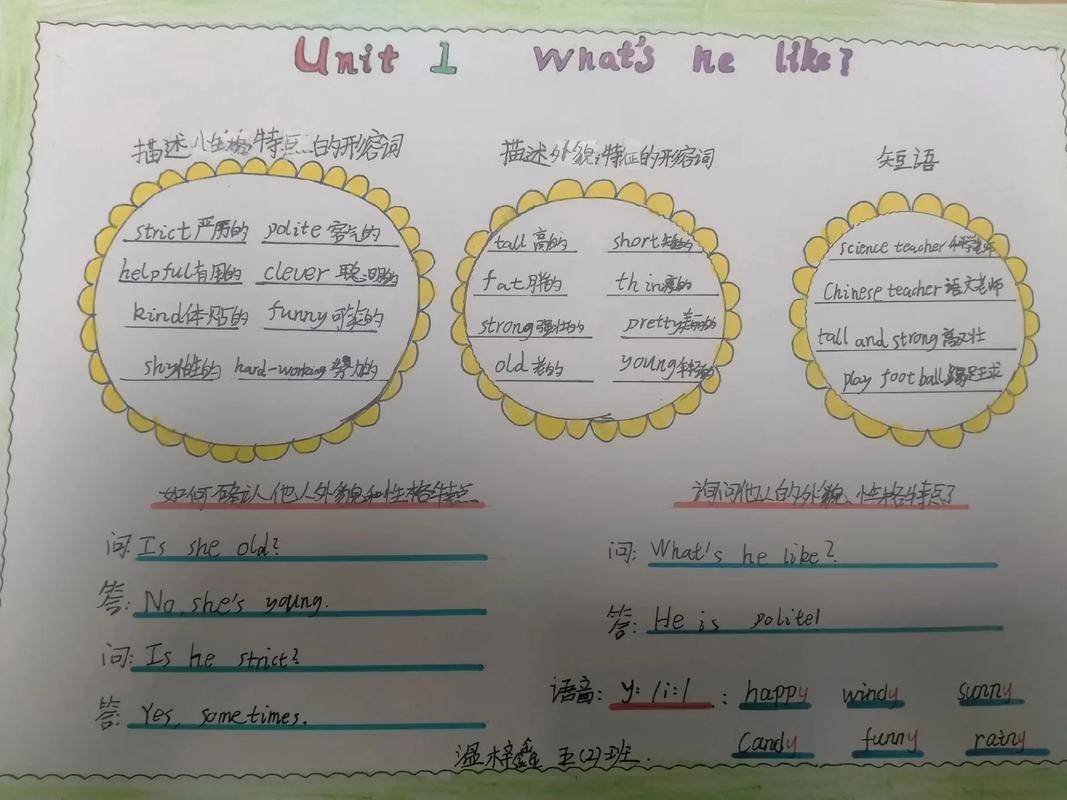 Unit 1 What's he like?
描述人性格特点的形容词
strict 严厉的 polite 客气的
helpful 有用的 clever 聪明的
kind 体贴的 funny 可笑的
shy 怕生的 hard-working 努力的
描述外貌特征的形容词
tall 高的 short 矮的
fat 胖的 thin 瘦的
strong 强壮的 pretty 美丽的
old 老的 young 年轻的
短语
science teacher 科学老师
Chinese teacher 语文老师
tall and strong 高又壮
play football 踢足球
如何确认他人外貌和性格特点
问: Is she old?
答: No, she's young.
问: Is he strict?
答: Yes, sometimes.
询问他人的外貌、性格特点
问: What's he like?
答: He is polite!
语音: y: /i:/ : happy windy sunny
candy funny rainy
温梓鑫 五(2)班.